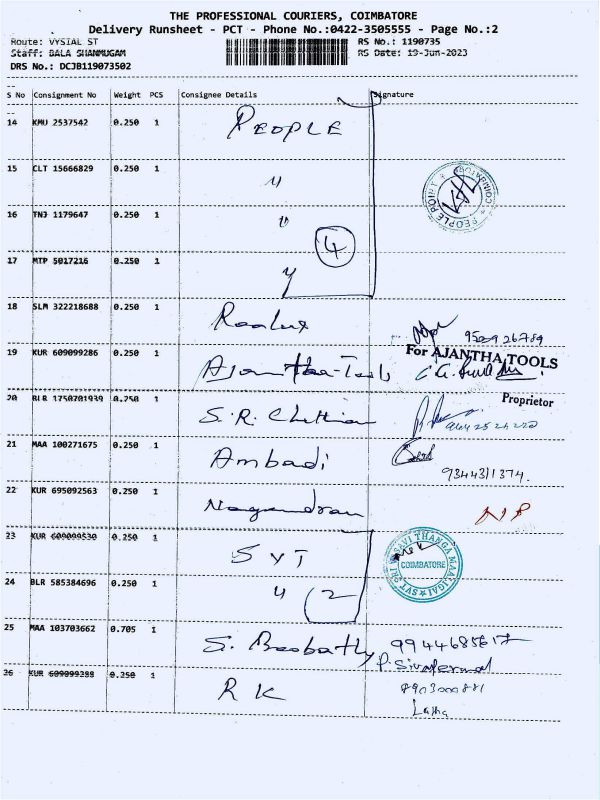 THE PROFESSIONAL COURIERS, COIMBATORE
Delivery Runsheet - PCT - Phone No.:0422-3505555 - Page No.:2
Route: VYSIAL ST RS No.: 1190735
Staff: BALA SHANMUGAM RS Date: 19-Jun-2023
DRS No.: DCJB119073502
S No Consignment No Weight PCS Consignee Details Signature
14 KMU 2537542 0.250 1 PEOPLE
15 CLT 15666829 0.250 1 "
PEOPLE POINT * COIMBATORE *
16 TNJ 1179647 0.250 1 "
4
17 MTP 5017216 0.250 1 "
18 SLM 322218688 0.250 1
19 KUR 609099286 0.250 1 Ajantha Tools
For AJANTHA TOOLS
Proprietor
20 BLR 1750701939 0.250 1 S. R. Chettiar
21 MAA 100271675 0.250 1 Ambadi
9344311374.
22 KUR 695092563 0.250 1 Nagendran NP
23 KUR 609099530 0.250 1 SVT
COIMBATORE
24 BLR 585384696 0.250 1 " 2
25 MAA 103703662 0.705 1 S.
P. Sivaperumal
26 KUR 609099288 0.250 1 RK
8903000881
Latha